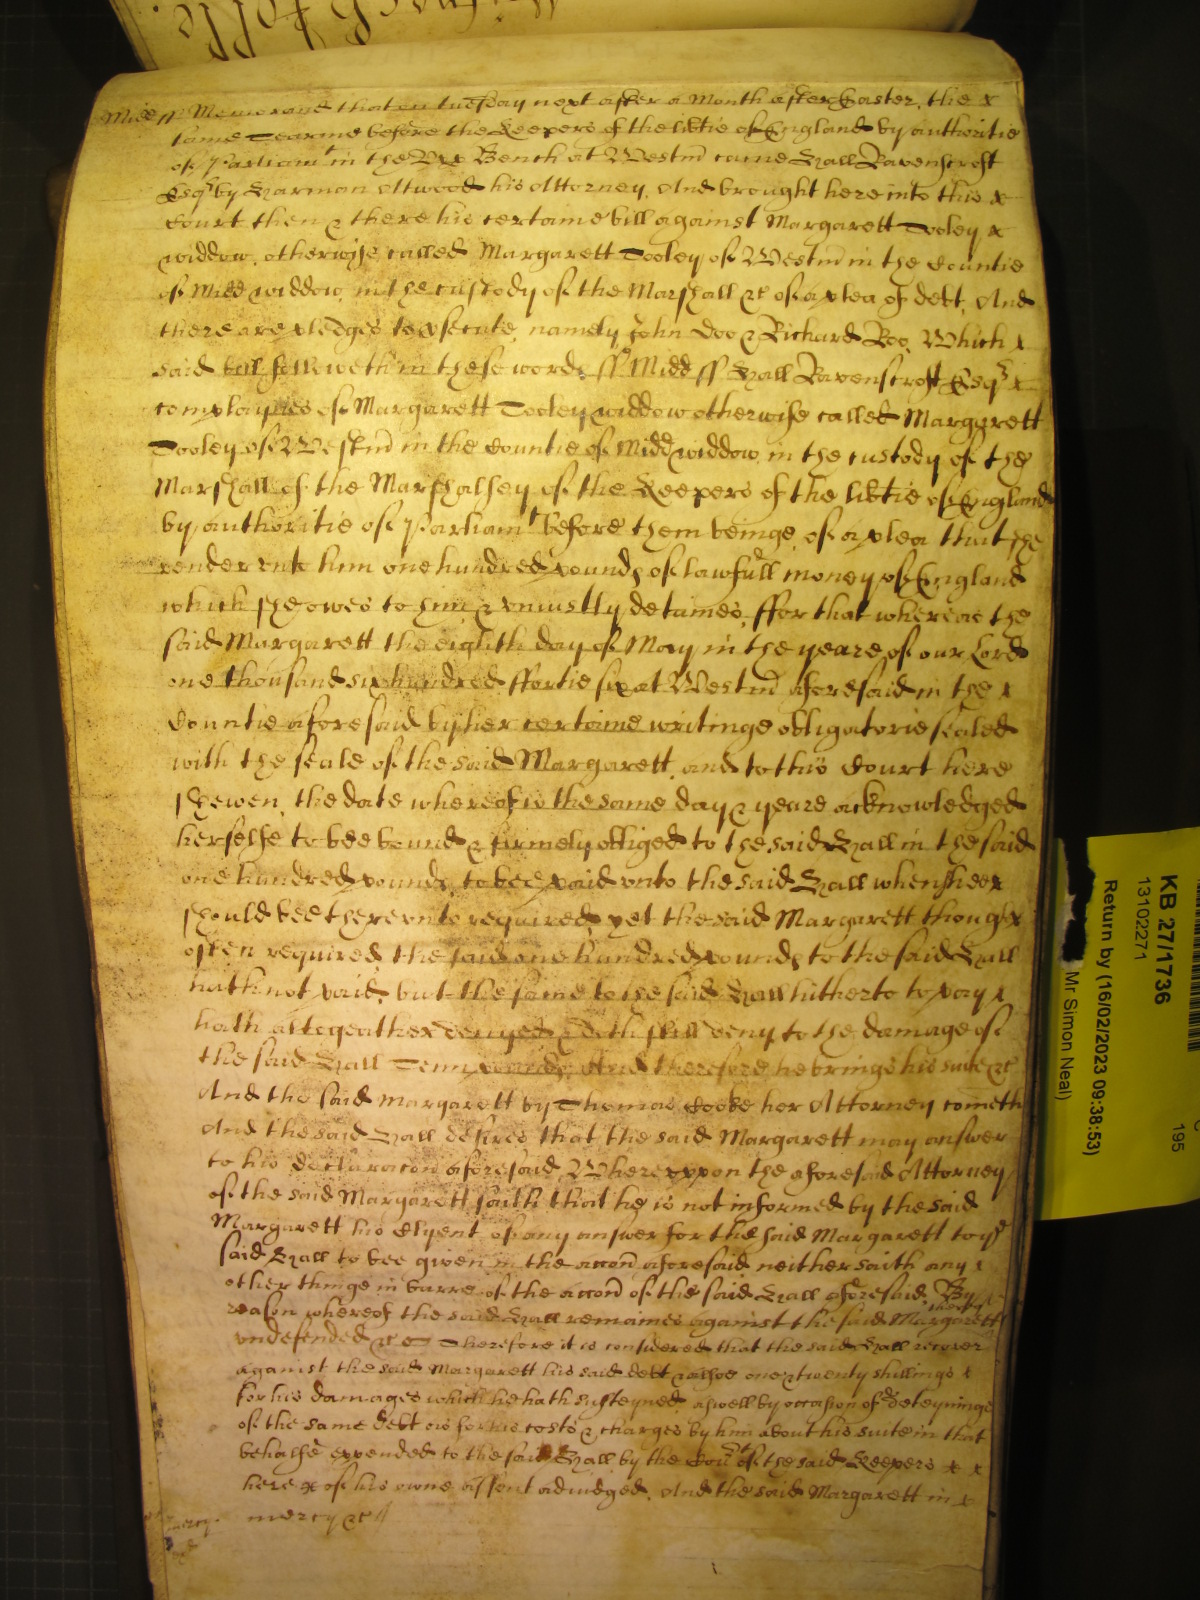 Midd ss Memorand that on tuesday next after a Month after Easter, the x
same Tearme before the Keepers of the libtie of England by authoritie
of Parliamt in the Vpp Bench at Westm came Hall Ravenscroft
Esqr by Harman Attwood his Attorney, And brought here into this x
Court then & there his certaine bill against Margarett Tooley x
widdow, otherwise called Margarett Tooley of Westm in the Countie
of Midd widdow, in the custody of the Marshall &c of a plea of debt, And
there are pledges to psecute, namely John Doo & Richard Roo, Which x
said bill followeth in these words ss Midd ss Hall Ravenscroft Esqr x
complaynes of Margarett Tooley widdow otherwise called Margarett
Tooley of Westm in the Countie of Midd widdow, in the custody of the
Marshall of the Marshalsey of the Keepers of the libtie of England
by authoritie of Parliamt before them beinge, of a plea that she
render vnto him one hundred pounds of lawfull money of England
which she owes to him & vniustly detaines, ffor that whereas the
said Margarett the eighth day of May in the yeare of our Lord
one thousand six hundred ffortie six at Westm aforesaid in the x
Countie aforesaid by her certaine writinge obligatorie sealed
with the seale of the said Margarett, and to this Court here
shewen, the date whereof is the same day & yeare acknowledged
herselfe to bee bound & firmely obliged to the said Hall in the said
one hundred pounds, to bee paid vnto the said Hall when shee x
should bee therevnto required, yet the said Margarett though x
often required, the said one hundred pounds to the said Hall
hath not paid, but the same to the said Hall hitherto to pay x
hath altogeather denyed & doth still deny to the damage of
the said Hall Tenn pounds, And therefore he brings his suite &c
And the said Margarett by Thomas Cooke her Attorney cometh
And the said Hall desires that the said Margarett may answer
to his declaracon aforesaid, Wherevppon the aforesaid Attorney
of the said Margarett saith that he is not informed by the said
Margarett his Clyent of any answer for the said Margarett to ye
said Hall to bee given in the accon aforesaid, neither saith any x
other thinge in barre of the accon of the said Hall aforesaid, By x
reason whereof the said Hall remaines against the said Margarett thereby
vndefended &c Therefore it is considered that the said Hall recover
against the said Margarett his said debt & alsoe one & twenty shillings x
for his damages which he hath susteyned, aswell by occasion of ye deteyninge
of the same debt as for his costs & charges by him about his suite in that
behalfe expended to the said Hall by the Court of the said Keepers x x
here & of his owne assent adiudged, And the said Margarett in x
mercy &c //
mercy
KB 27/1736
13102271
Return by (16/02/2023 09:38:53)
Mr Simon Neal)
195